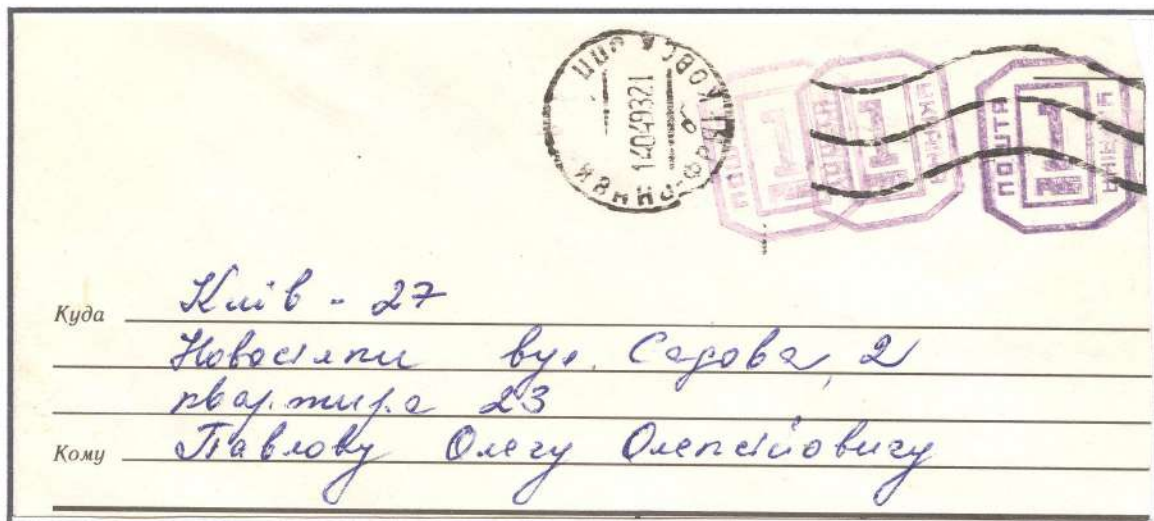 ИВАНО-ФРАНКОВСК ППП
14049321
ПОШТА 1 УКРАЇНА
ПОШТА 1 УКРАЇНА
ПОШТА 1 УКРАЇНА
Куда Київ - 27
Новосілки вул. Садова, 2
квартира 23
Кому Павлову Олегу Олексійовичу